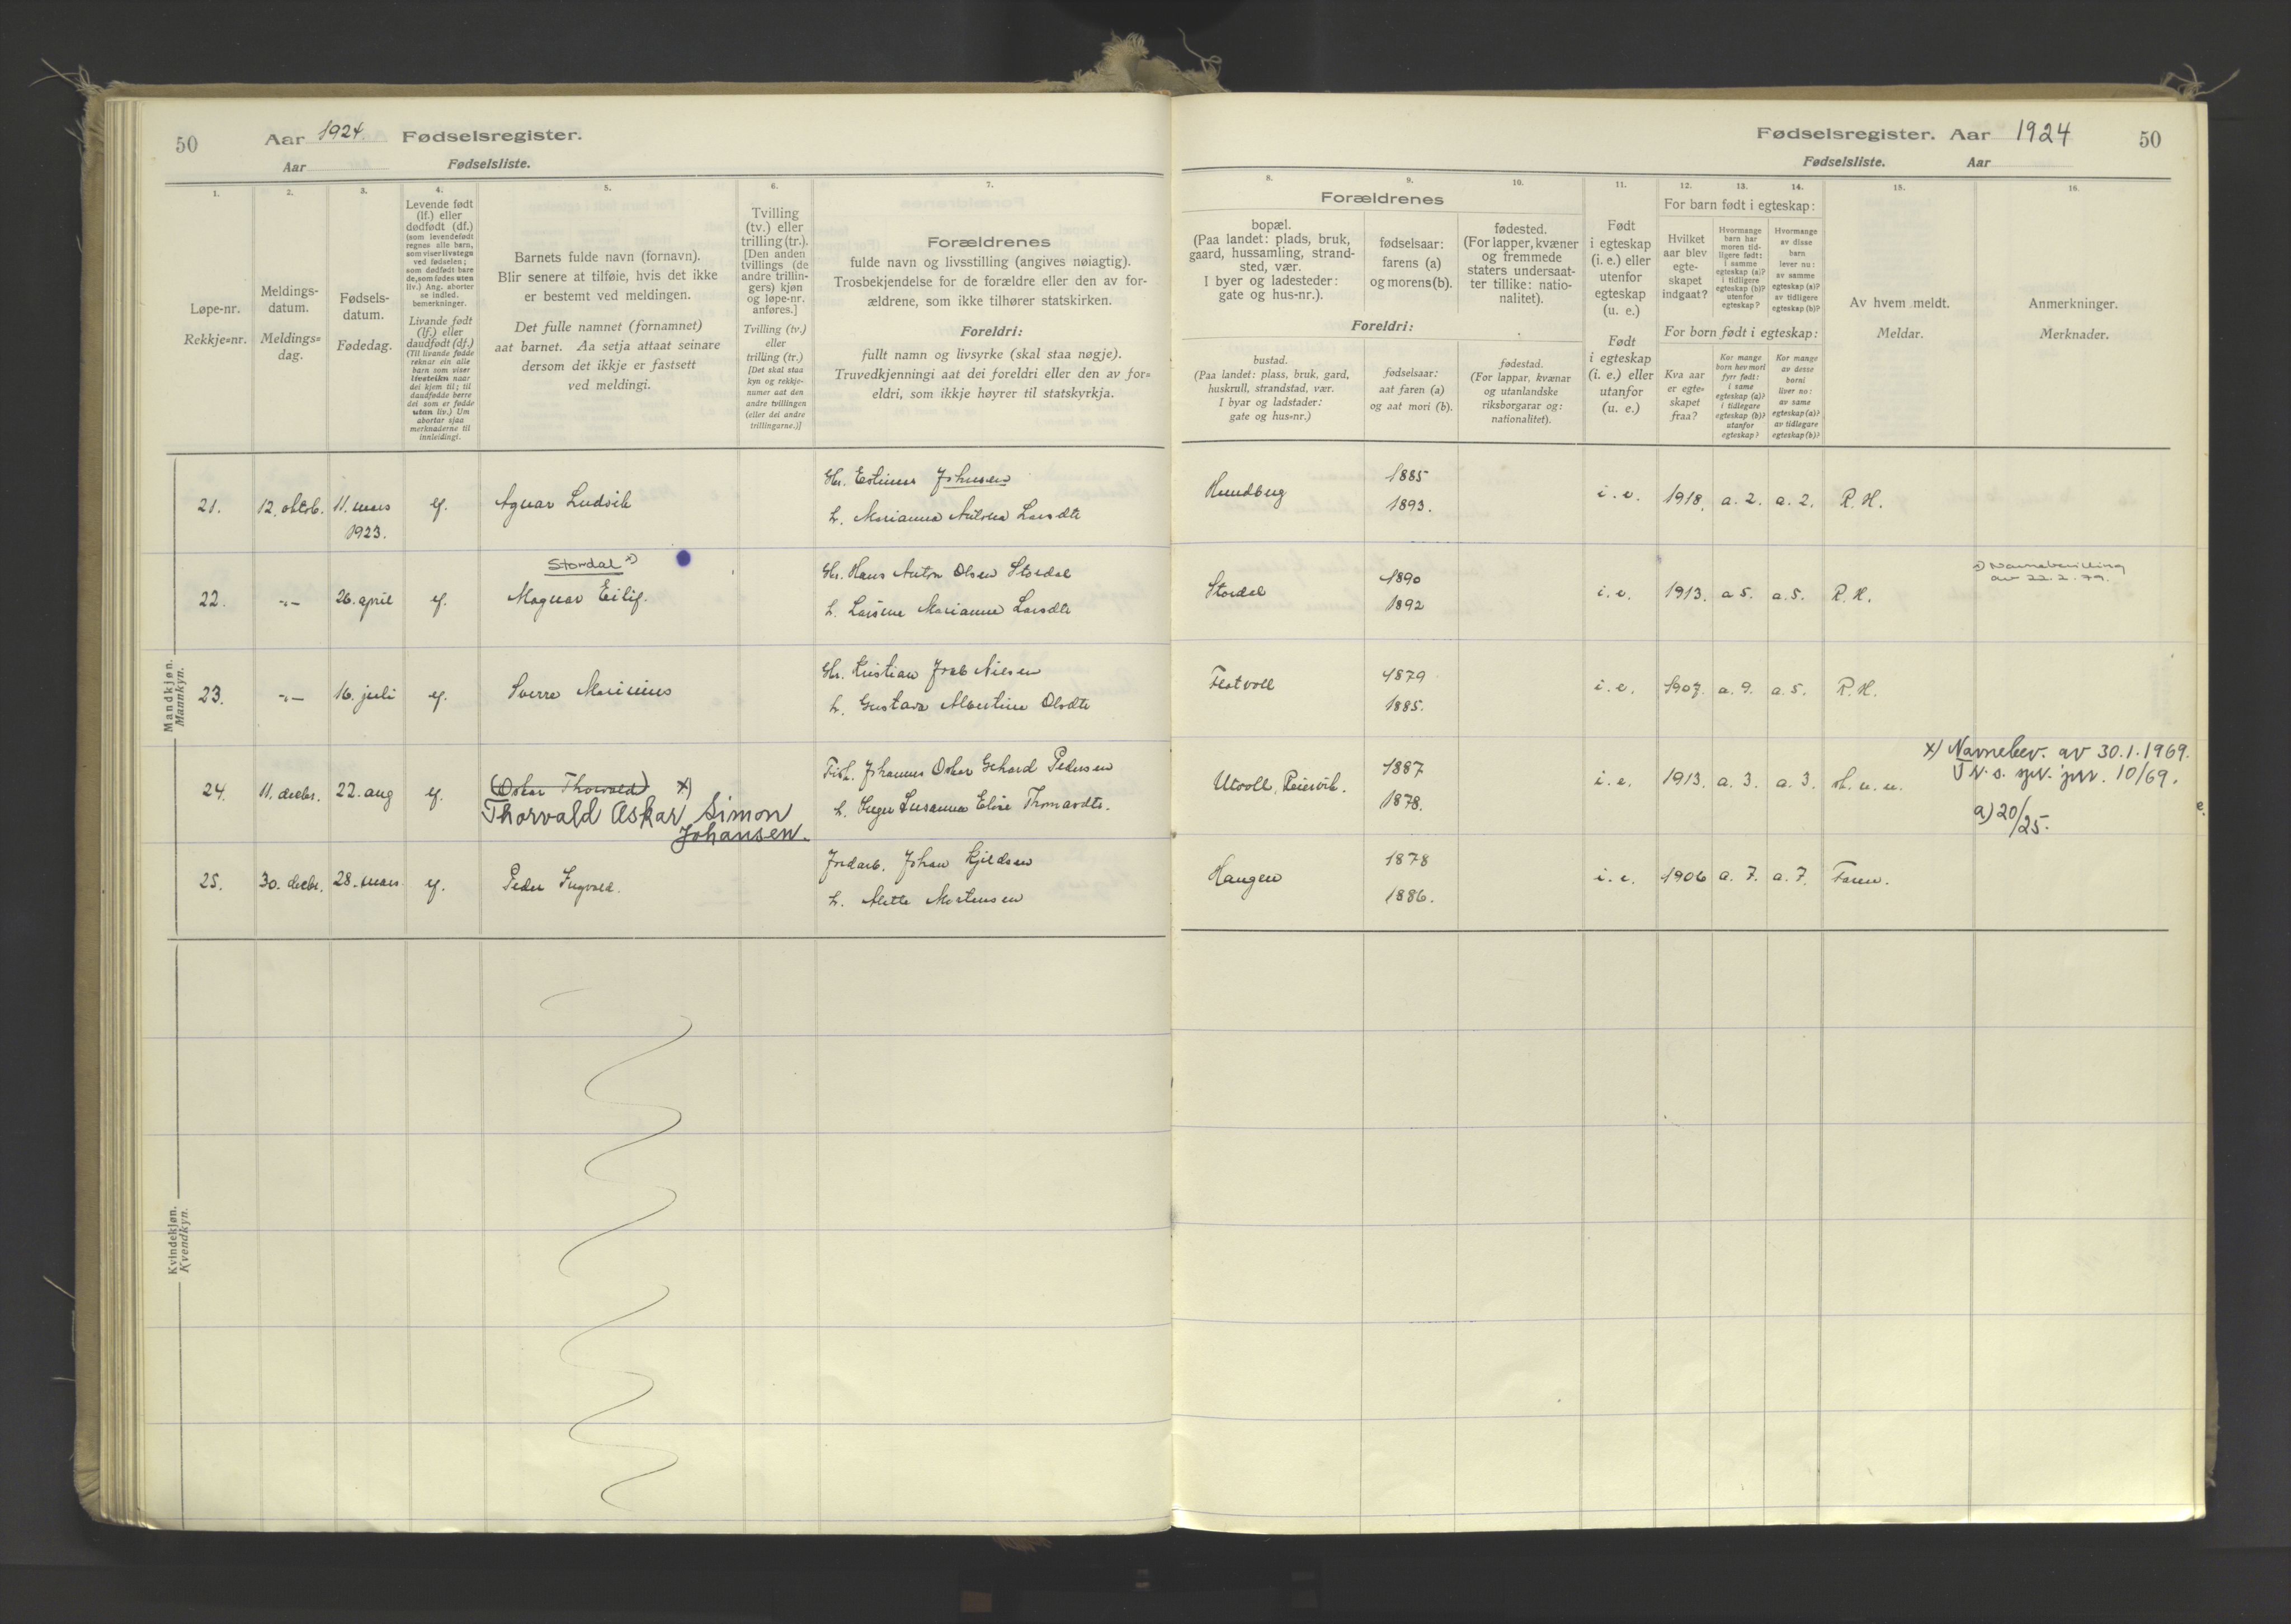 50 Aar 1924. Fødselsregister.
Aar Fødselsliste.
1. 2. 3. 4. 5. 6. 7.
Løpe-nr.
Rekkje=nr.
Meldings-
datum.
Meldings=
dag.
Fødsels-
datum.
Fødedag.
Levende født
(lf.) eller
dødfødt (df.)
(som levendefødt
regnes alle barn,
som viser livstegn
ved fødselen;
som dødfødt bare
de, som fødes uten
liv.) Ang. aborter
se indled.
bemerkninger.
Livande født
(lf.) eller
daudfødt (df.)
(Til livande fødde
reknar ein alle
barn som viser
livsteikn naar
dei kjem til; til
daudfødde berre
dei som er fødde
utan liv.) Um
abortar sjaa
merknaderne til
innleidingi.
Barnets fulde navn (fornavn).
Blir senere at tilføie, hvis det ikke
er bestemt ved meldingen.
Det fulle namnet (fornamnet)
aat barnet. Aa setja attaat seinare
dersom det ikkje er fastsett
ved meldingi.
Tvilling
(tv.) eller
trilling (tr.).
[Den anden
tvillings (de
andre trillin-
gers) kjøn
og løpe-nr.
anføres.]
Tvilling (tv.)
eller
trilling (tr.)
[Det skal staa
kyn og rekkje-
numer aat den
andre tvillingen
(eller dei andre
trillingarne.)]
Forældrenes
fulde navn og livsstilling (angives nøiagtig).
Trosbekjendelse for de forældre eller den av for-
ældrene, som ikke tilhører statskirken.
Foreldri:
fullt namn og livsyrke (skal staa nøgje).
Truvedkjenningi aat dei foreldri eller den av for=
eldri, som ikkje høyrer til statskyrkja.
Mandkjøn.
Mannkyn.
21. 12. oktob. 11. mars lf. Agnar Ludvik Gbr. Johnsen
1923. h. Marianna Larsdtr
Stordal x)
22. -"- 26. april lf. Magnar Eilif. Gbr. Hans Anton Olsen Stordal
h. Larsine Marianne Larsdtr
23. -"- 16. juli lf. Sverre Marinius Gbr. Kristian Nilsen
h. Gustava Albertine Olsdtr
24. 11. decbr. 22. aug lf. (Oskar Thorvald) x) Fisk. Johannes Oskar Gehard Pedersen
Thorvald Oskar Simon h. Inger Susanna Elise Thomasdtr.
Johansen.
25. 30. decbr. 28. mars lf. Peder Ingvald. Jordarb. Johan Kjeldsen
h. Mette Mortensen
Kvindekjøn.
Kvendkyn.
Fødselsregister. Aar 1924 50
Fødselsliste. Aar
8. 9. 10. 11. 12. 13. 14. 15. 16.
Forældrenes
bopæl.
(Paa landet: plads, bruk,
gaard, hussamling, strand-
sted, vær.
I byer og ladesteder:
gate og hus-nr.).
fødselsaar:
farens (a)
og morens (b).
fødested.
(For lapper, kvæner
og fremmede
staters undersaat-
ter tillike: natio-
nalitet).
Foreldri:
bustad.
(Paa landet: plass, bruk, gard,
huskrull, strandstad, vær.
I byar og ladstader:
gate og hus=nr.)
fødselsaar:
aat faren (a)
og aat mori (b).
fødestad.
(For lappar, kvænar
og utanlandske
riksborgarar og:
nationalitet).
Født
i egteskap
(i. e.) eller
utenfor
egteskap
(u. e.)
Født
i egteskap
(i. e.) eller
utanfor
(u. e.)
For barn født i egteskap:
Hvilket
aar blev
egte-
skapet
indgaat?
Hvormange
barn har
moren tid-
ligere født:
i samme
egteskap (a)?
i tidligere
egteskap (b)?
utenfor
egteskap?
Hvormange
av disse
barn
lever nu:
av samme
egteskap (a)?
av tidligere
egteskap (b)?
For born født i egteskap:
Kva aar
er egte-
skapet
fraa?
Kor mange
born hev mori
fyrr født:
i same
egteskap (a)?
i tidlegare
egteskap (b)?
utanfor
egteskap?
Kor mange
av desse
borni
liver no:
av same
egteskap (a)?
av tidlegare
egteskap (b)?
Av hvem meldt.
Meldar.
Anmerkninger.
Merknader.
Hundberg 1885 i. e. 1918. a. 2. a. 2. R. H.
1893.
Stordal 1890 i. e. 1913. a 5. a. 5. R. H. x) Navnebevilling
1892 av 22.2.79.
Flatvoll 1879 i. e. 1907. a. 9. a. 5. R. H.
1885.
Utvoll, Reiervik. 1887 i. e. 1913. a. 3. a. 3. x) Navnebev. av 30.1.1969.
1878. J.N. s. 10/69.
a) 20/25.
Haugen 1878 i. e. 1906 a. 7. a. 7. Faren.
1886.